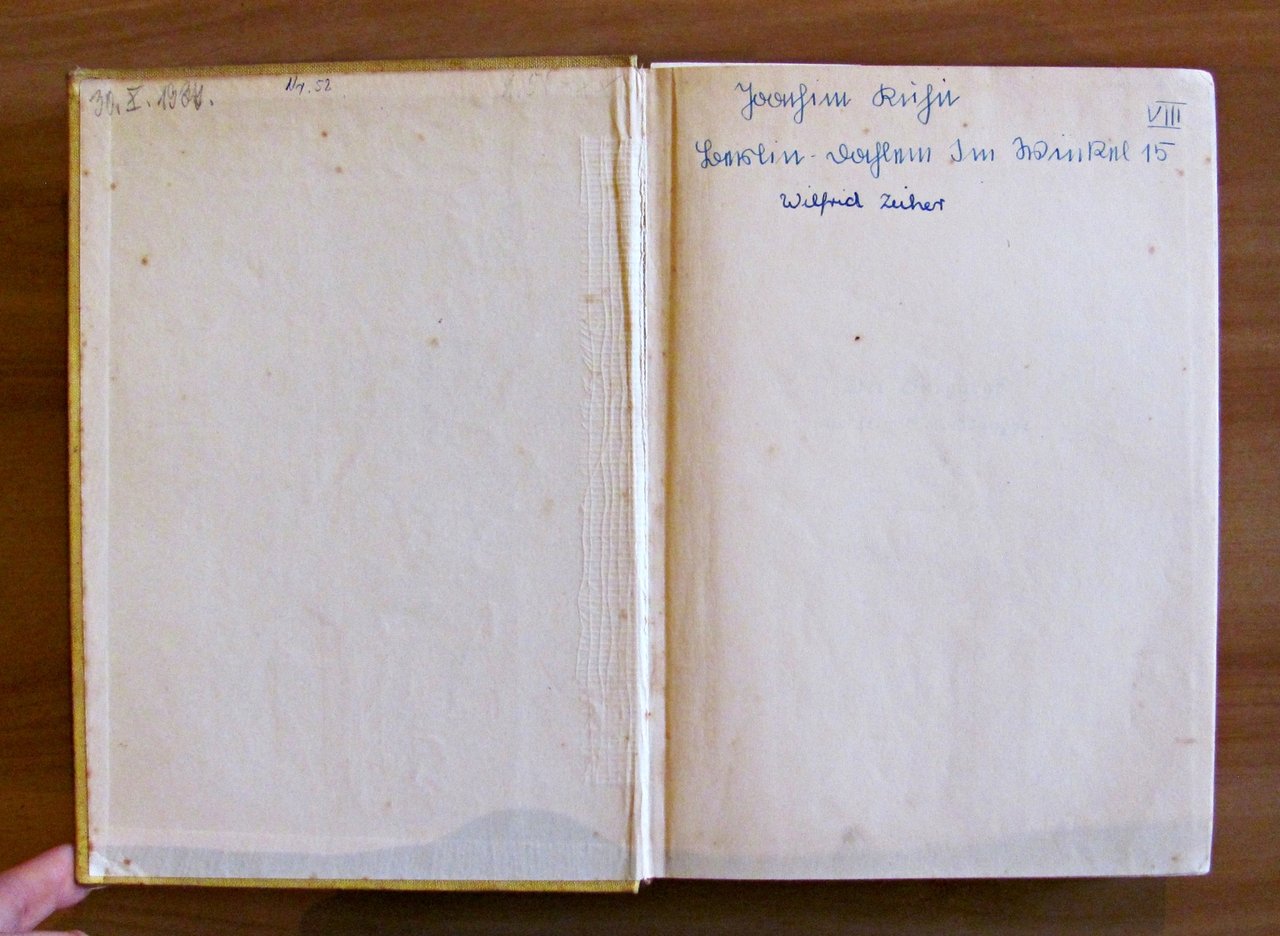 30. X. 19
Nr. 52
Joachim Kühn
VIII
Berlin-Dahlem Im Winkel 15
Wilfrid Zeiher